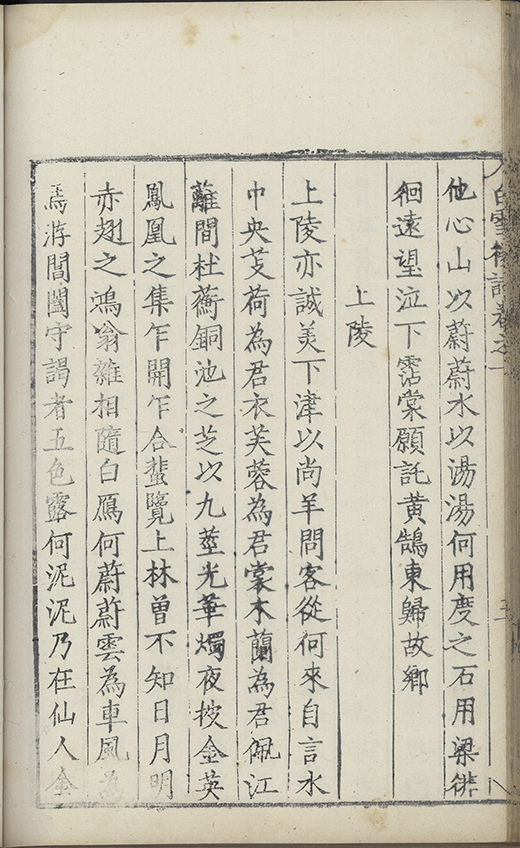 白雪詩卷之一 五
他心山以蔚蔚水以湯湯何用度之石用梁徘
徊遠望泣下霑棠願託黃鵠東歸故鄉
上陵
上陵亦誠美下津以尚羊問客從何來自言水
中央芰荷為君衣芙蓉為君裳木蘭為君佩江
蘺間杜蘅銅池之芝以九莖光華燭夜披金英
鳳凰之集乍開乍合蜚覽上林曾不知日月明
赤翅之鴻翁雜相隨白鴈何蔚蔚雲為車風為
馬游閶闔守謁者五色露何泥泥乃在仙人金